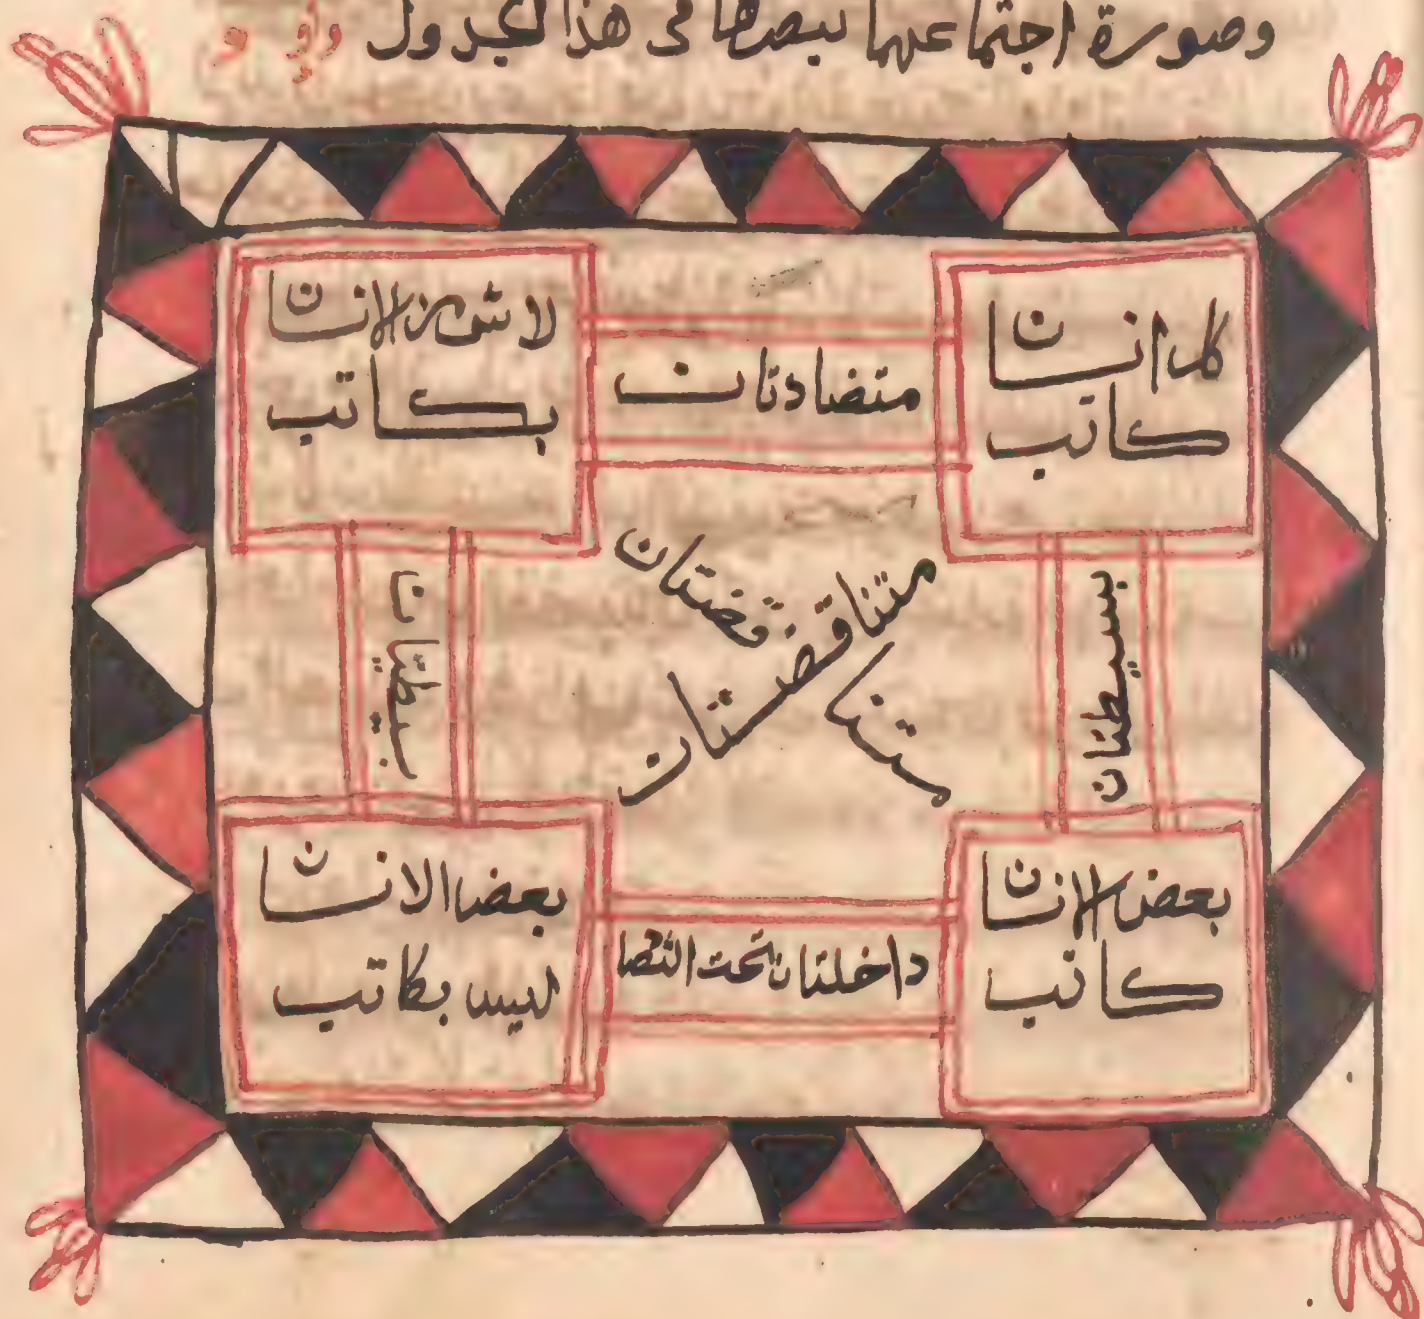 وصورة اجتماعهما تبصرها فى هذا الجدول
كل انسان
كاتب
متضادتان
لا شى من الانسان
بكاتب
بسيطتان
متناقضتان
متناقضتان
بعض الانسان
كاتب
داخلتان تحت التضا
بعض الانسان
ليس بكاتب